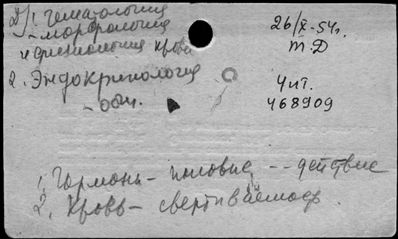 2) 1. Гематология
- морфология
и физиология крови
26/X-54г.
т. Д
2. Эндокринология
- общ.
Чит.
468909
1. Гормоны - половые -- действие
2. Кровь - свертываемость